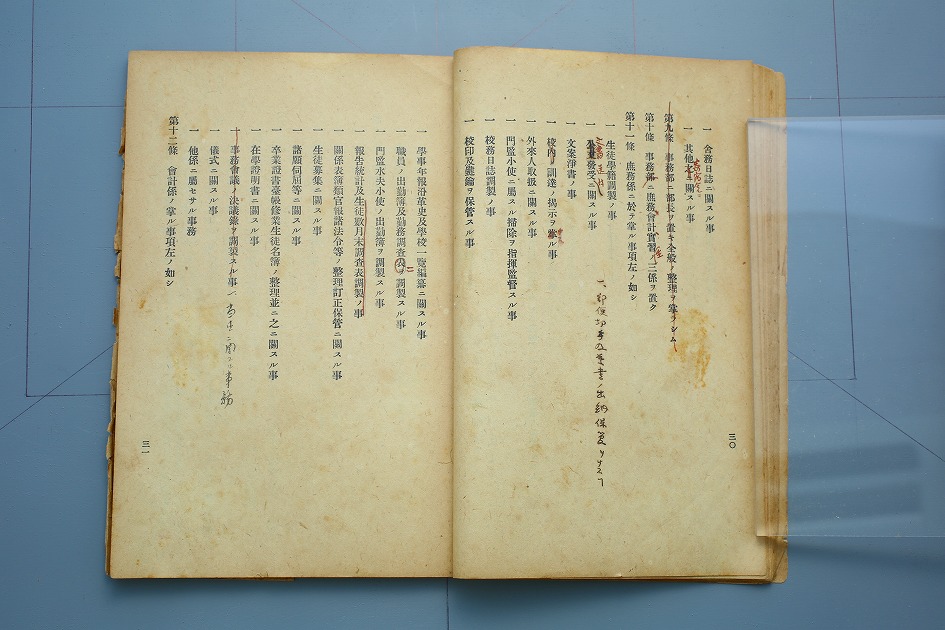 一 舍務日誌ニ關スル事
一 其他舍ニ關スル事
第九條 事務部ニ部長ヲ置キ全般ノ整理ヲ掌ラシム
第十條 事務部ニ庶務會計實習ノ三係ヲ置ク
第十一條 庶務係ニ於ヲ掌ル事項左ノ如シ
一 生徒學籍調製ノ事
發受ニ關スル事
一 文案淨書ノ事
一 校內ノ訓達ノ揭示ヲ掌ル事
一 外來人取扱ニ關スル事
一 門監小使ニ屬スル掃除ヲ指揮監督スル事
一 校務日誌調製ノ事
一 校印及鍵鑰ヲ保管スル事
一、郵便切手及葉書ノ出納保管
三〇
一 學事年報沿革史及學校一覽編纂ニ關スル事
一 職員ノ出勤簿及勤務調査表ヲ調製スル事
一 門監水夫小使ノ出勤簿ヲ調製スル事
一 報告統計及生徒數月末調査表調製ノ事
一 關係表簿類官報諸法令等ノ整理訂正保管ニ關スル事
一 生徒募集ニ關スル事
一 諸願伺屆等ニ關スル事
一 卒業證書臺帳修業生徒名簿ノ整理並ニ之ニ關スル事
一 在學證明書ニ關スル事
一 事務會議ノ決議錄ヲ調製スル事
ニ關スル事務
一 儀式ニ關スル事
一 他係ニ屬セサル事務
第十二條 會計係ノ掌ル事項左ノ如シ
三一